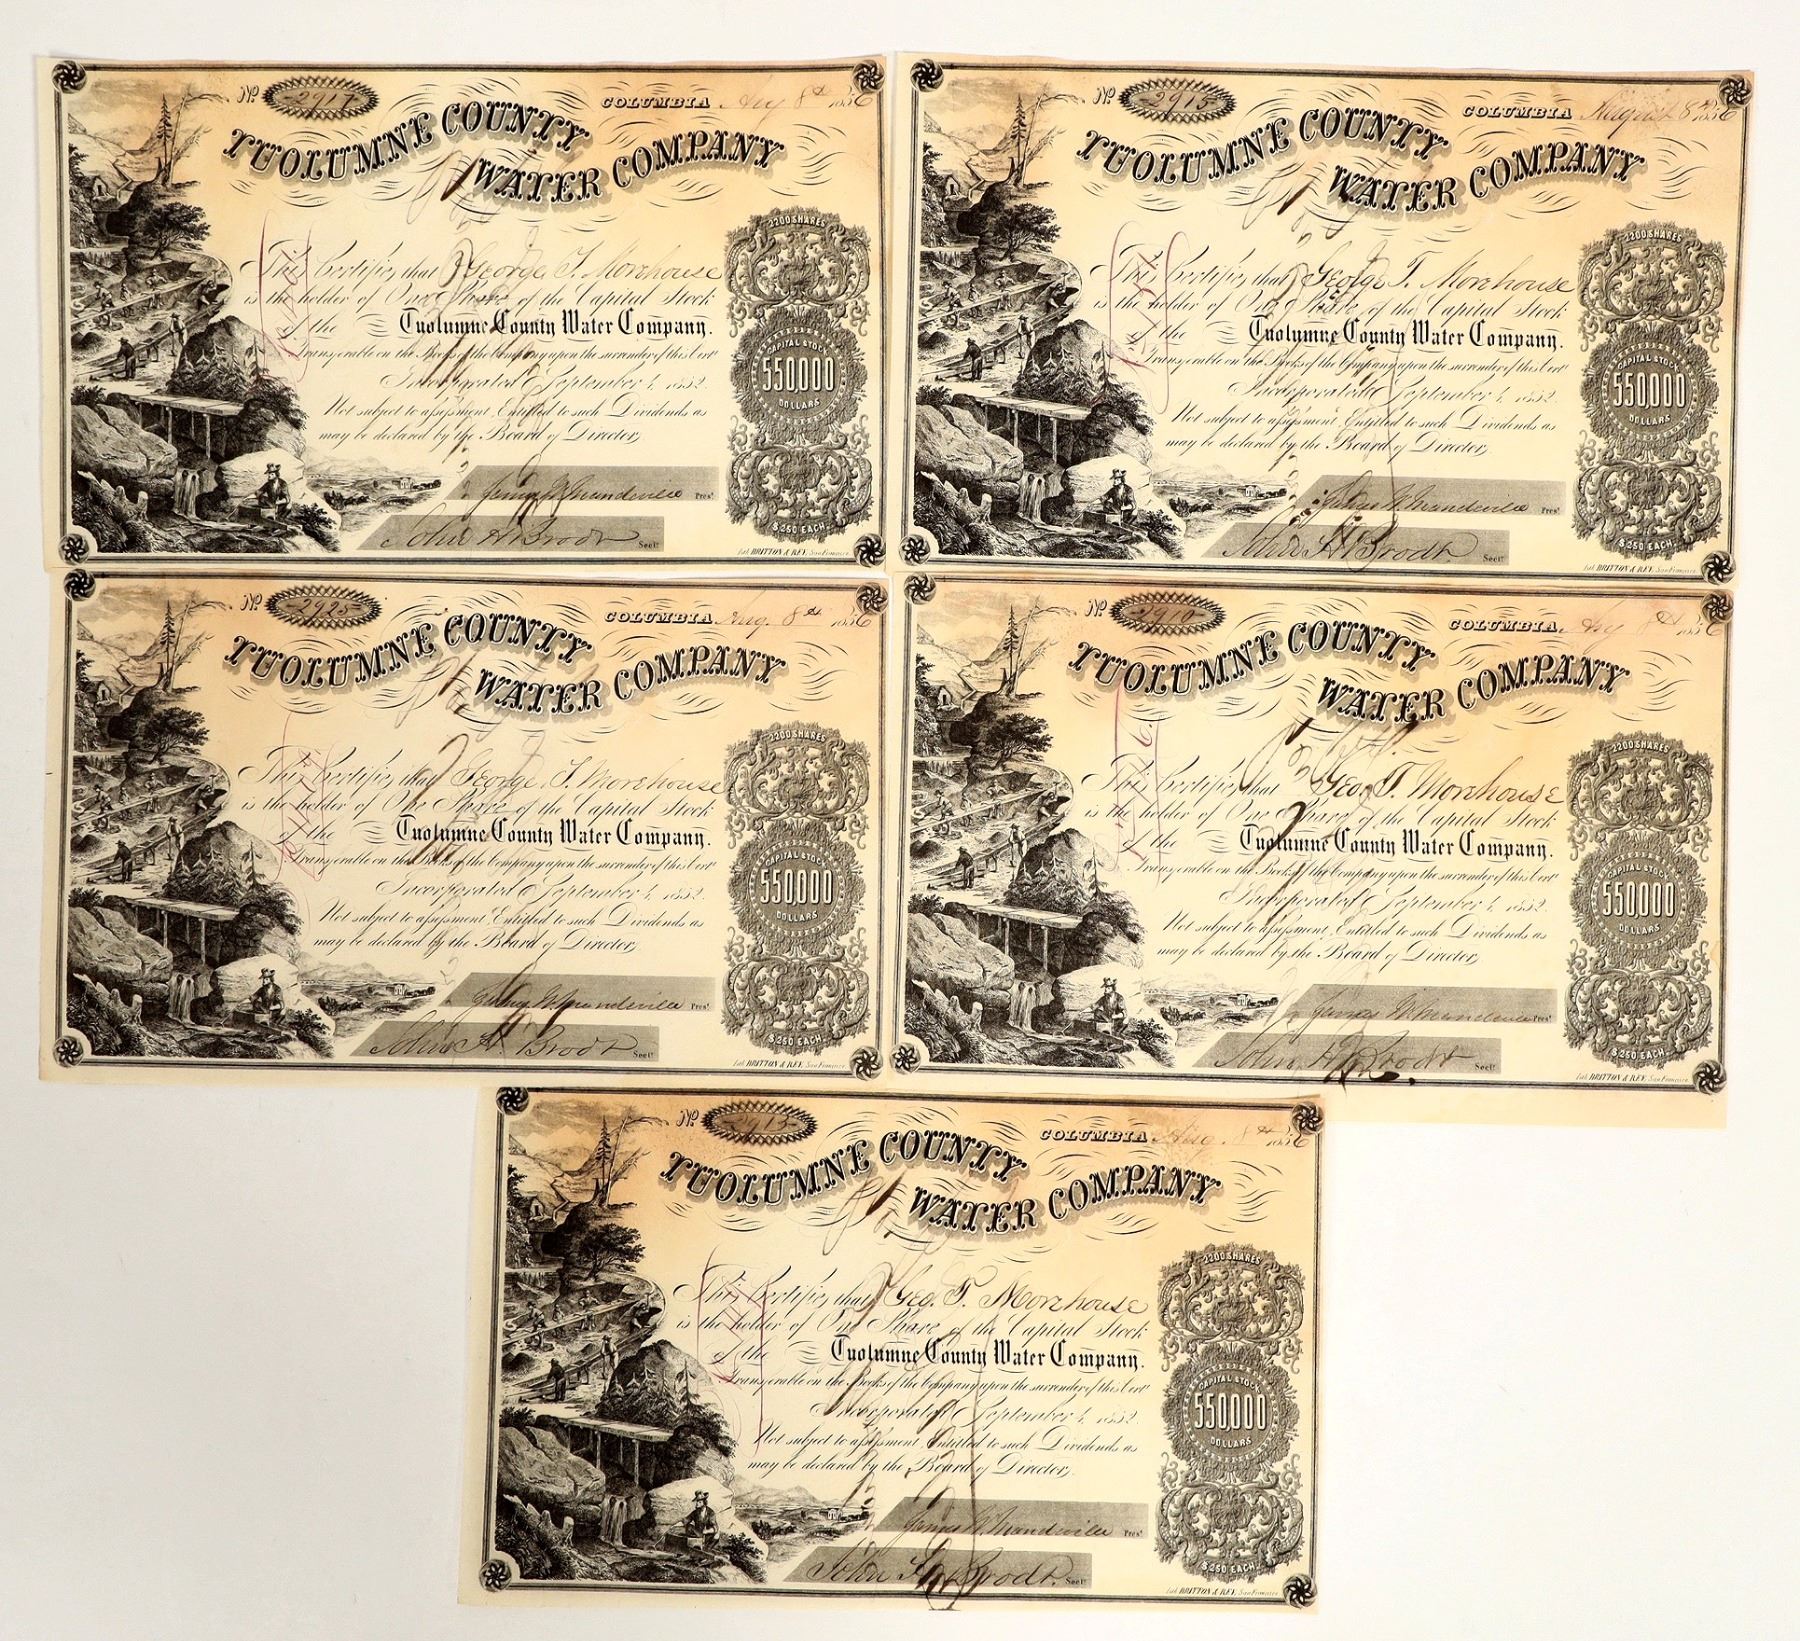 No 2917 COLUMBIA Aug 8th 1856
TUOLUMNE COUNTY
WATER COMPANY
This Certifies that George T. Morehouse
is the holder of One Share of the Capital Stock
of the Tuolumne County Water Company.
Transferable on the Books of the Company upon the surrender of this Cert
Incorporated September 4, 1852.
Not subject to assessment. Entitled to such Dividends as
may be declared by the Board of Directors
2200 SHARES
CAPITAL STOCK
550,000
DOLLARS
$250 EACH
James W Mandeville Prest
John H Brodt Secty
Lith BRITTON & REY, San Francisco
No 2915 COLUMBIA August 8th 1856
TUOLUMNE COUNTY
WATER COMPANY
This Certifies that George T. Morehouse
is the holder of One Share of the Capital Stock
of the Tuolumne County Water Company.
Transferable on the Books of the Company upon the surrender of this Cert
Incorporated September 4, 1852.
Not subject to assessment. Entitled to such Dividends as
may be declared by the Board of Directors
2200 SHARES
CAPITAL STOCK
550,000
DOLLARS
$250 EACH
James W Mandeville Prest
John H Brodt Secty
Lith BRITTON & REY, San Francisco
No 2925 COLUMBIA Aug. 8th 1856
TUOLUMNE COUNTY
WATER COMPANY
This Certifies that George T. Morehouse
is the holder of One Share of the Capital Stock
of the Tuolumne County Water Company.
Transferable on the Books of the Company upon the surrender of this Cert
Incorporated September 4, 1852.
Not subject to assessment. Entitled to such Dividends as
may be declared by the Board of Directors
2200 SHARES
CAPITAL STOCK
550,000
DOLLARS
$250 EACH
James W Mandeville Prest
John H. Brodt Secty
Lith BRITTON & REY, San Francisco
No 2910 COLUMBIA Aug 8th 1856
TUOLUMNE COUNTY
WATER COMPANY
This Certifies that Geo. T. Morehouse
is the holder of One Share of the Capital Stock
of the Tuolumne County Water Company.
Transferable on the Books of the Company upon the surrender of this Cert
Incorporated September 4, 1852.
Not subject to assessment. Entitled to such Dividends as
may be declared by the Board of Directors
2200 SHARES
CAPITAL STOCK
550,000
DOLLARS
$250 EACH
James W Mandeville Prest
John H Brodt Secty
Lith BRITTON & REY, San Francisco
No 2913 COLUMBIA Aug. 8th 1856
TUOLUMNE COUNTY
WATER COMPANY
This Certifies that Geo. T. Morehouse
is the holder of One Share of the Capital Stock
of the Tuolumne County Water Company.
Transferable on the Books of the Company upon the surrender of this Cert
Incorporated September 4, 1852.
Not subject to assessment. Entitled to such Dividends as
may be declared by the Board of Directors
2200 SHARES
CAPITAL STOCK
550,000
DOLLARS
$250 EACH
James W. Mandeville Prest
John H Brodt. Secty
Lith BRITTON & REY, San Francisco